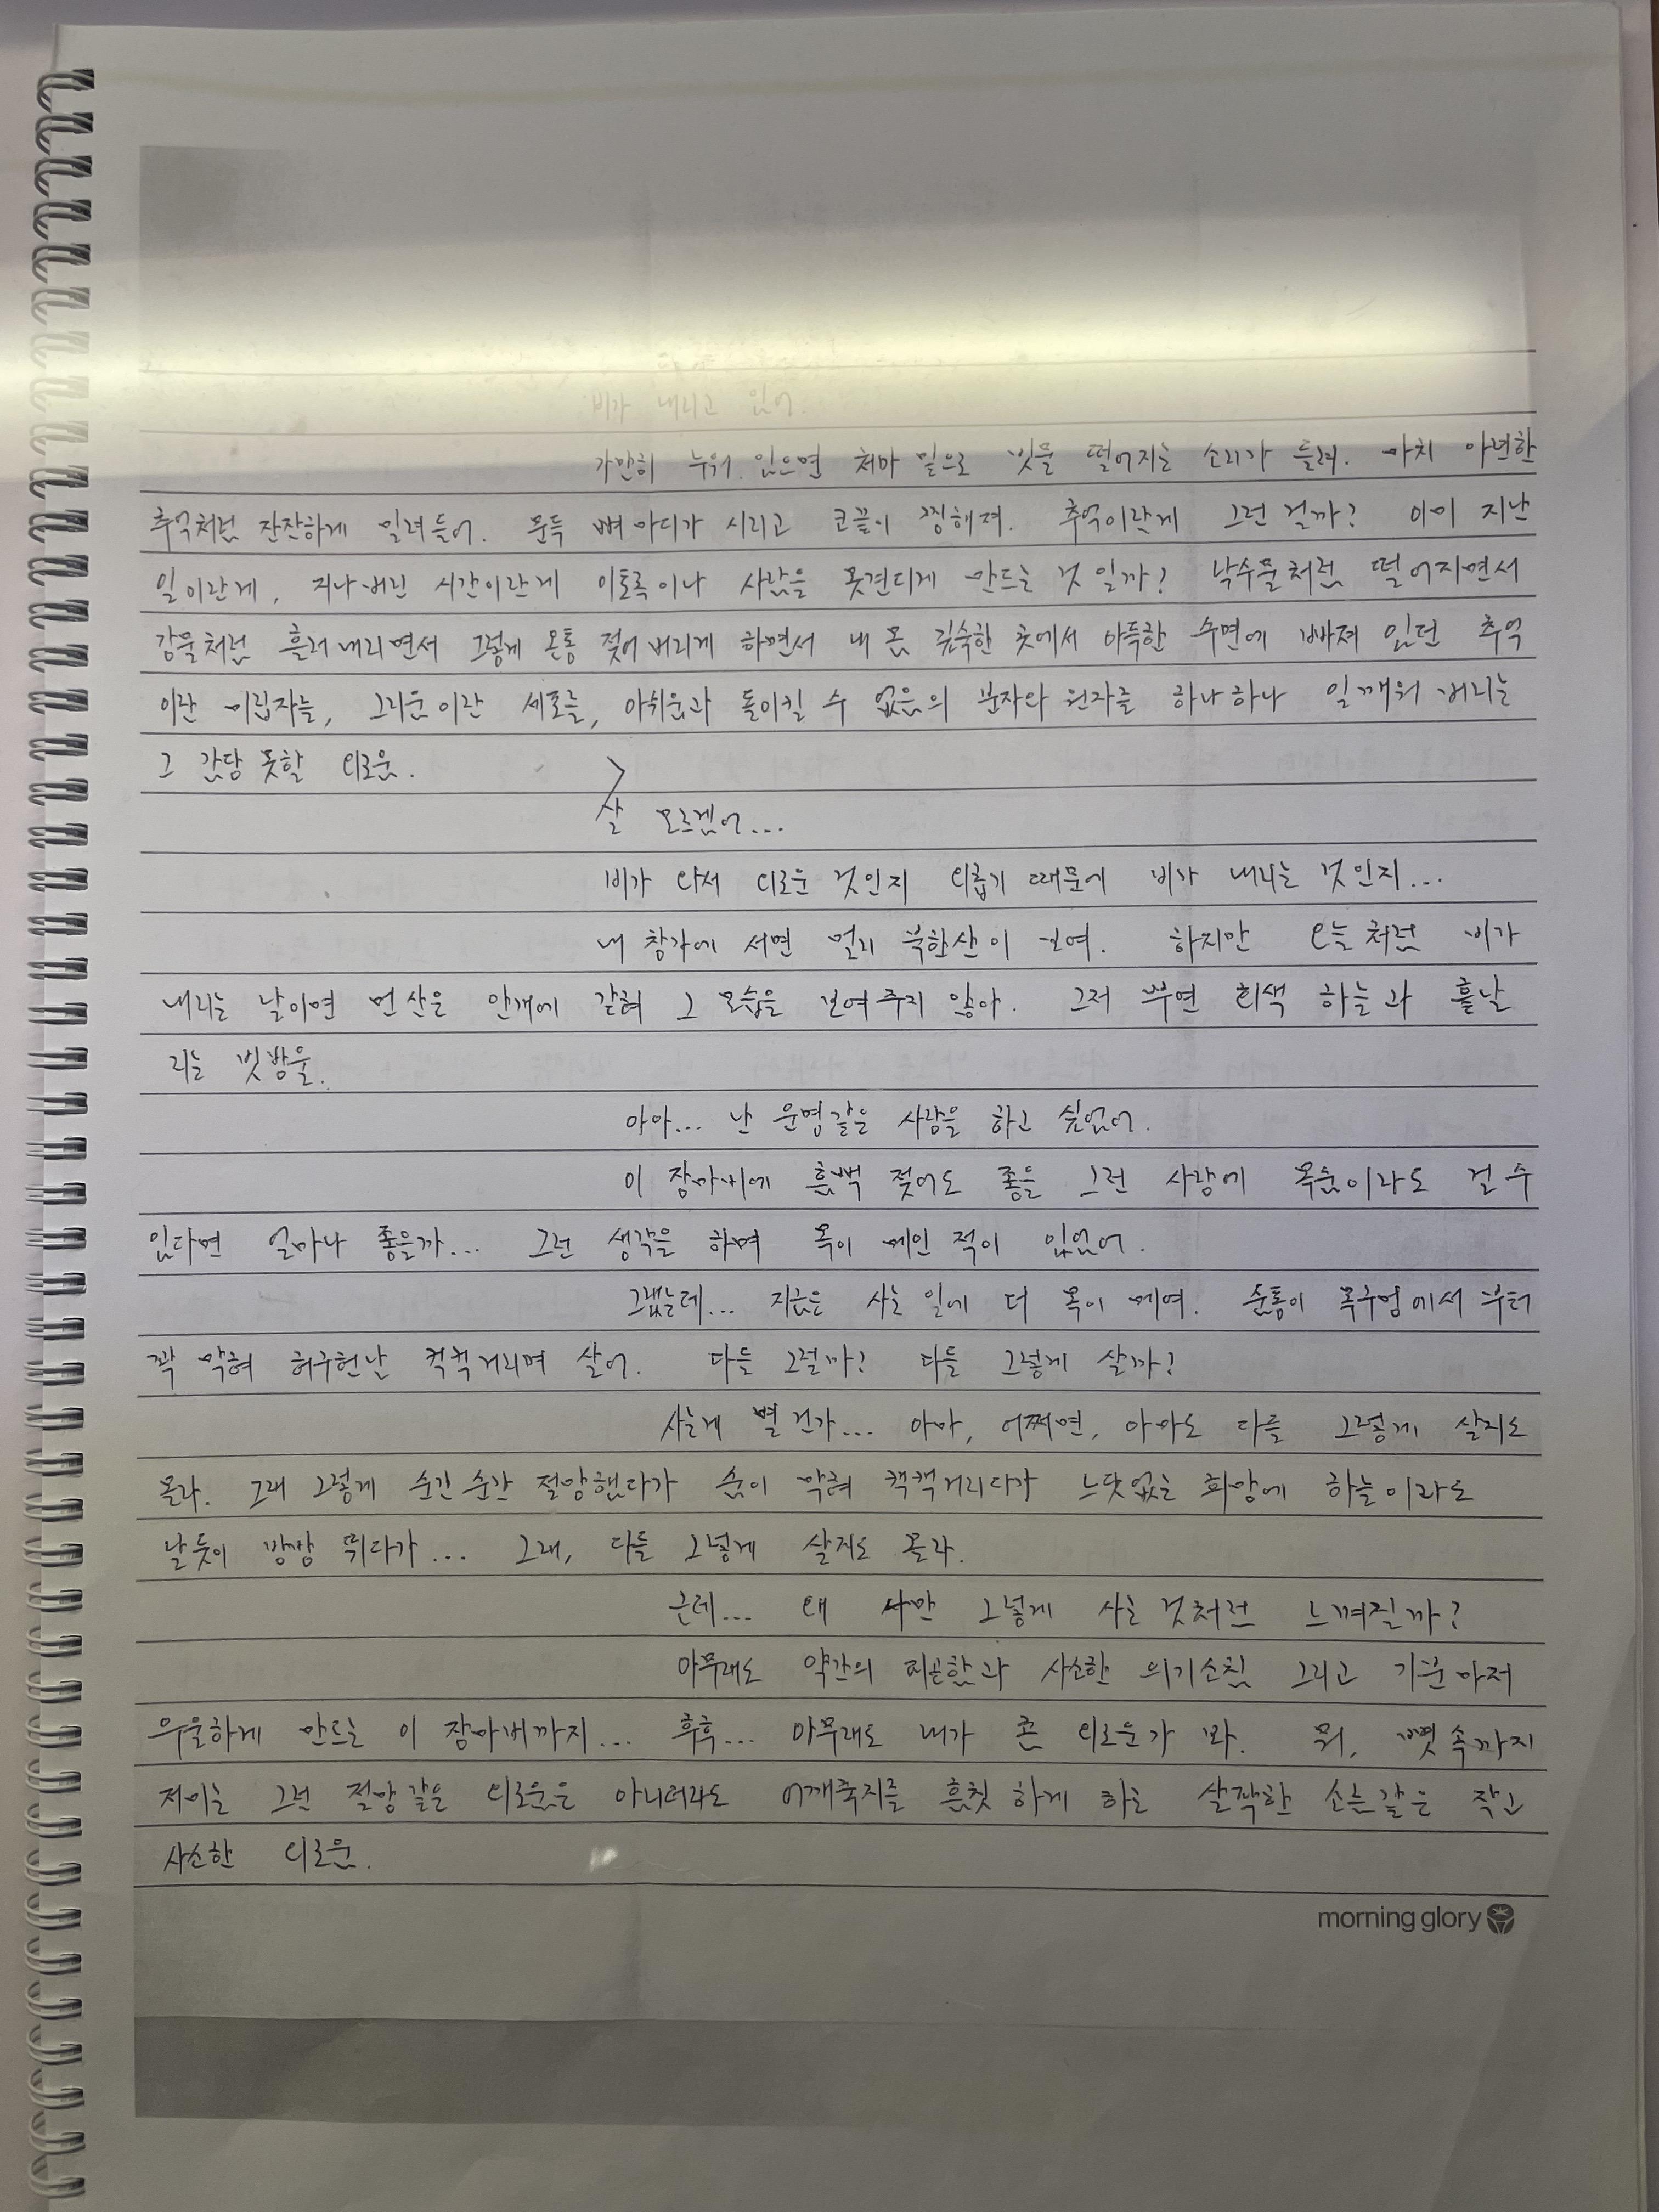 비가 내리고 있어.
가만히 누워 있으면 처마 밑으로 빗물 떨어지는 소리가 들려. 마치 아련한
추억처럼 잔잔하게 밀려들어. 문득 뼈마디가 시리고 코끝이 찡해져. 추억이란게 그런 걸까? 이미 지난
일이란게, 지나버린 시간이란게 이토록이나 사람을 못견디게 만드는 것일까? 낙숫물처럼 떨어지면서
강물처럼 흘러내리면서 그렇게 온통 젖어버리게 하면서 내 몸 깊숙한 곳에서 아득한 수면에 빠져 있던 추억
이란 미립자들, 그리움이란 세포들, 아쉬움과 돌이킬 수 없음의 분자와 원자를 하나하나 일깨워 버리는
그 감당 못할 외로움.
잘 모르겠어...
비가 와서 외로운 것인지 외롭기 때문에 비가 내리는 것인지...
내 창가에 서면 멀리 북한산이 보여. 하지만 오늘처럼 비가
내리는 날이면 먼 산은 안개에 갇혀 그 모습을 보여주지 않아. 그저 뿌연 회색 하늘과 흩날
리는 빗방울.
아아... 난 운명같은 사랑을 하고 싶었어.
이 장마비에 흠뻑 젖어도 좋을 그런 사랑에 목숨이라도 걸 수
있다면 얼마나 좋을까... 그런 생각을 하며 목이 메인 적이 있었어.
그랬는데... 지금은 사는 일에 더 목이 메여. 숨통이 목구멍에서부터
꽉 막혀 허구헌날 컥컥거리며 살어. 다들 그럴까? 다들 그렇게 살까?
사는게 별 건가... 아아, 어쩌면, 아마도 다들 그렇게 살지도
몰라. 그래 그렇게 순간순간 절망했다가 숨이 막혀 캑캑거리다가 느닷없는 희망에 하늘이라도
날듯이 방방 뛰다가... 그래, 다들 그렇게 살지도 몰라.
근데... 왜 나만 그렇게 사는 것처럼 느껴질까?
아무래도 약간의 피곤함과 사소한 의기소침 그리고 기분마저
우울하게 만드는 이 장마비까지... 후훅... 아무래도 내가 좀 외로운가 봐. 뭐, 뼛속까지
저미는 그런 절망같은 외로움은 아니더라도 어깨죽지를 흠칫하게 하는 살짝한 소름같은 작고
사소한 외로움.
morning glory